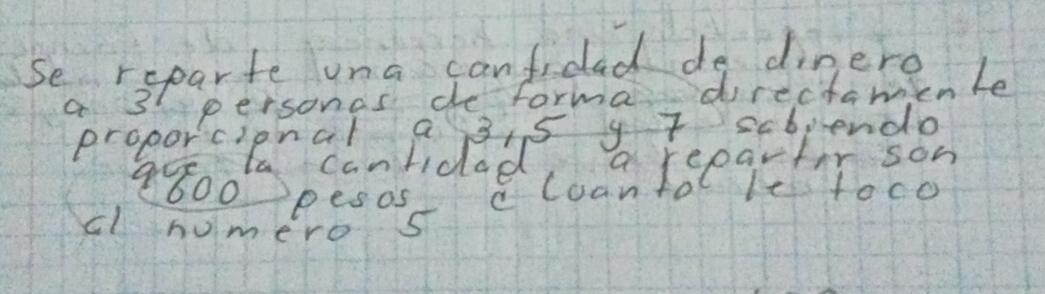 Se reparte una cantidad de dinero
a 3 personas de forma directamente
proporcional a 3, 5 y 7 sabiendo
que la cantidad a repartir son
600 pesos ¿Cuanto le toco
al numero 5